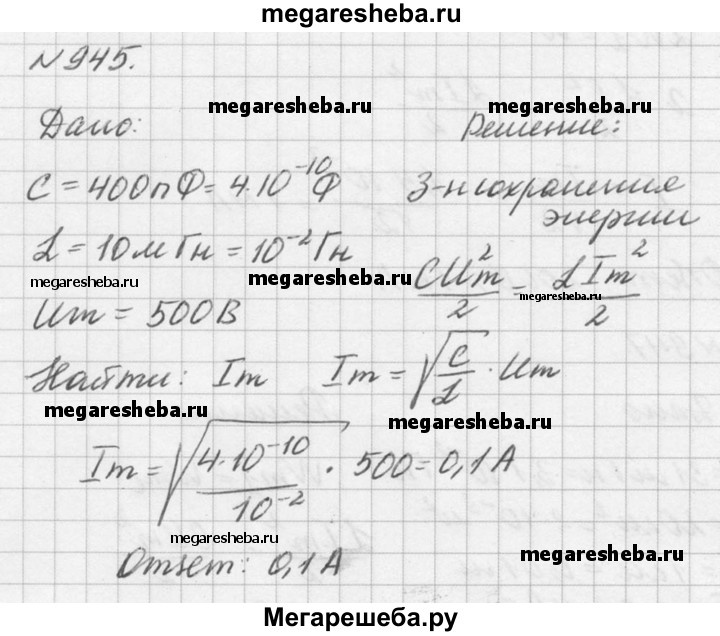 megaresheba.ru
N 945.
megaresheba.ru megaresheba.ru
Дано: Решение:
C = 400 пФ = 4·10⁻¹⁰ Ф З-н сохранения
энергии
L = 10 мГн = 10⁻² Гн
megaresheba.ru megaresheba.ru
CUm²/2 = LIm²/2
megaresheba.ru
Um = 500 В
Найти: Im Im = √(C/L) · Um
megaresheba.ru megaresheba.ru
Im = √(4·10⁻¹⁰/10⁻²) · 500 = 0,1 А
megaresheba.ru megaresheba.ru
Ответ: 0,1 А
Мегарешеба.ру